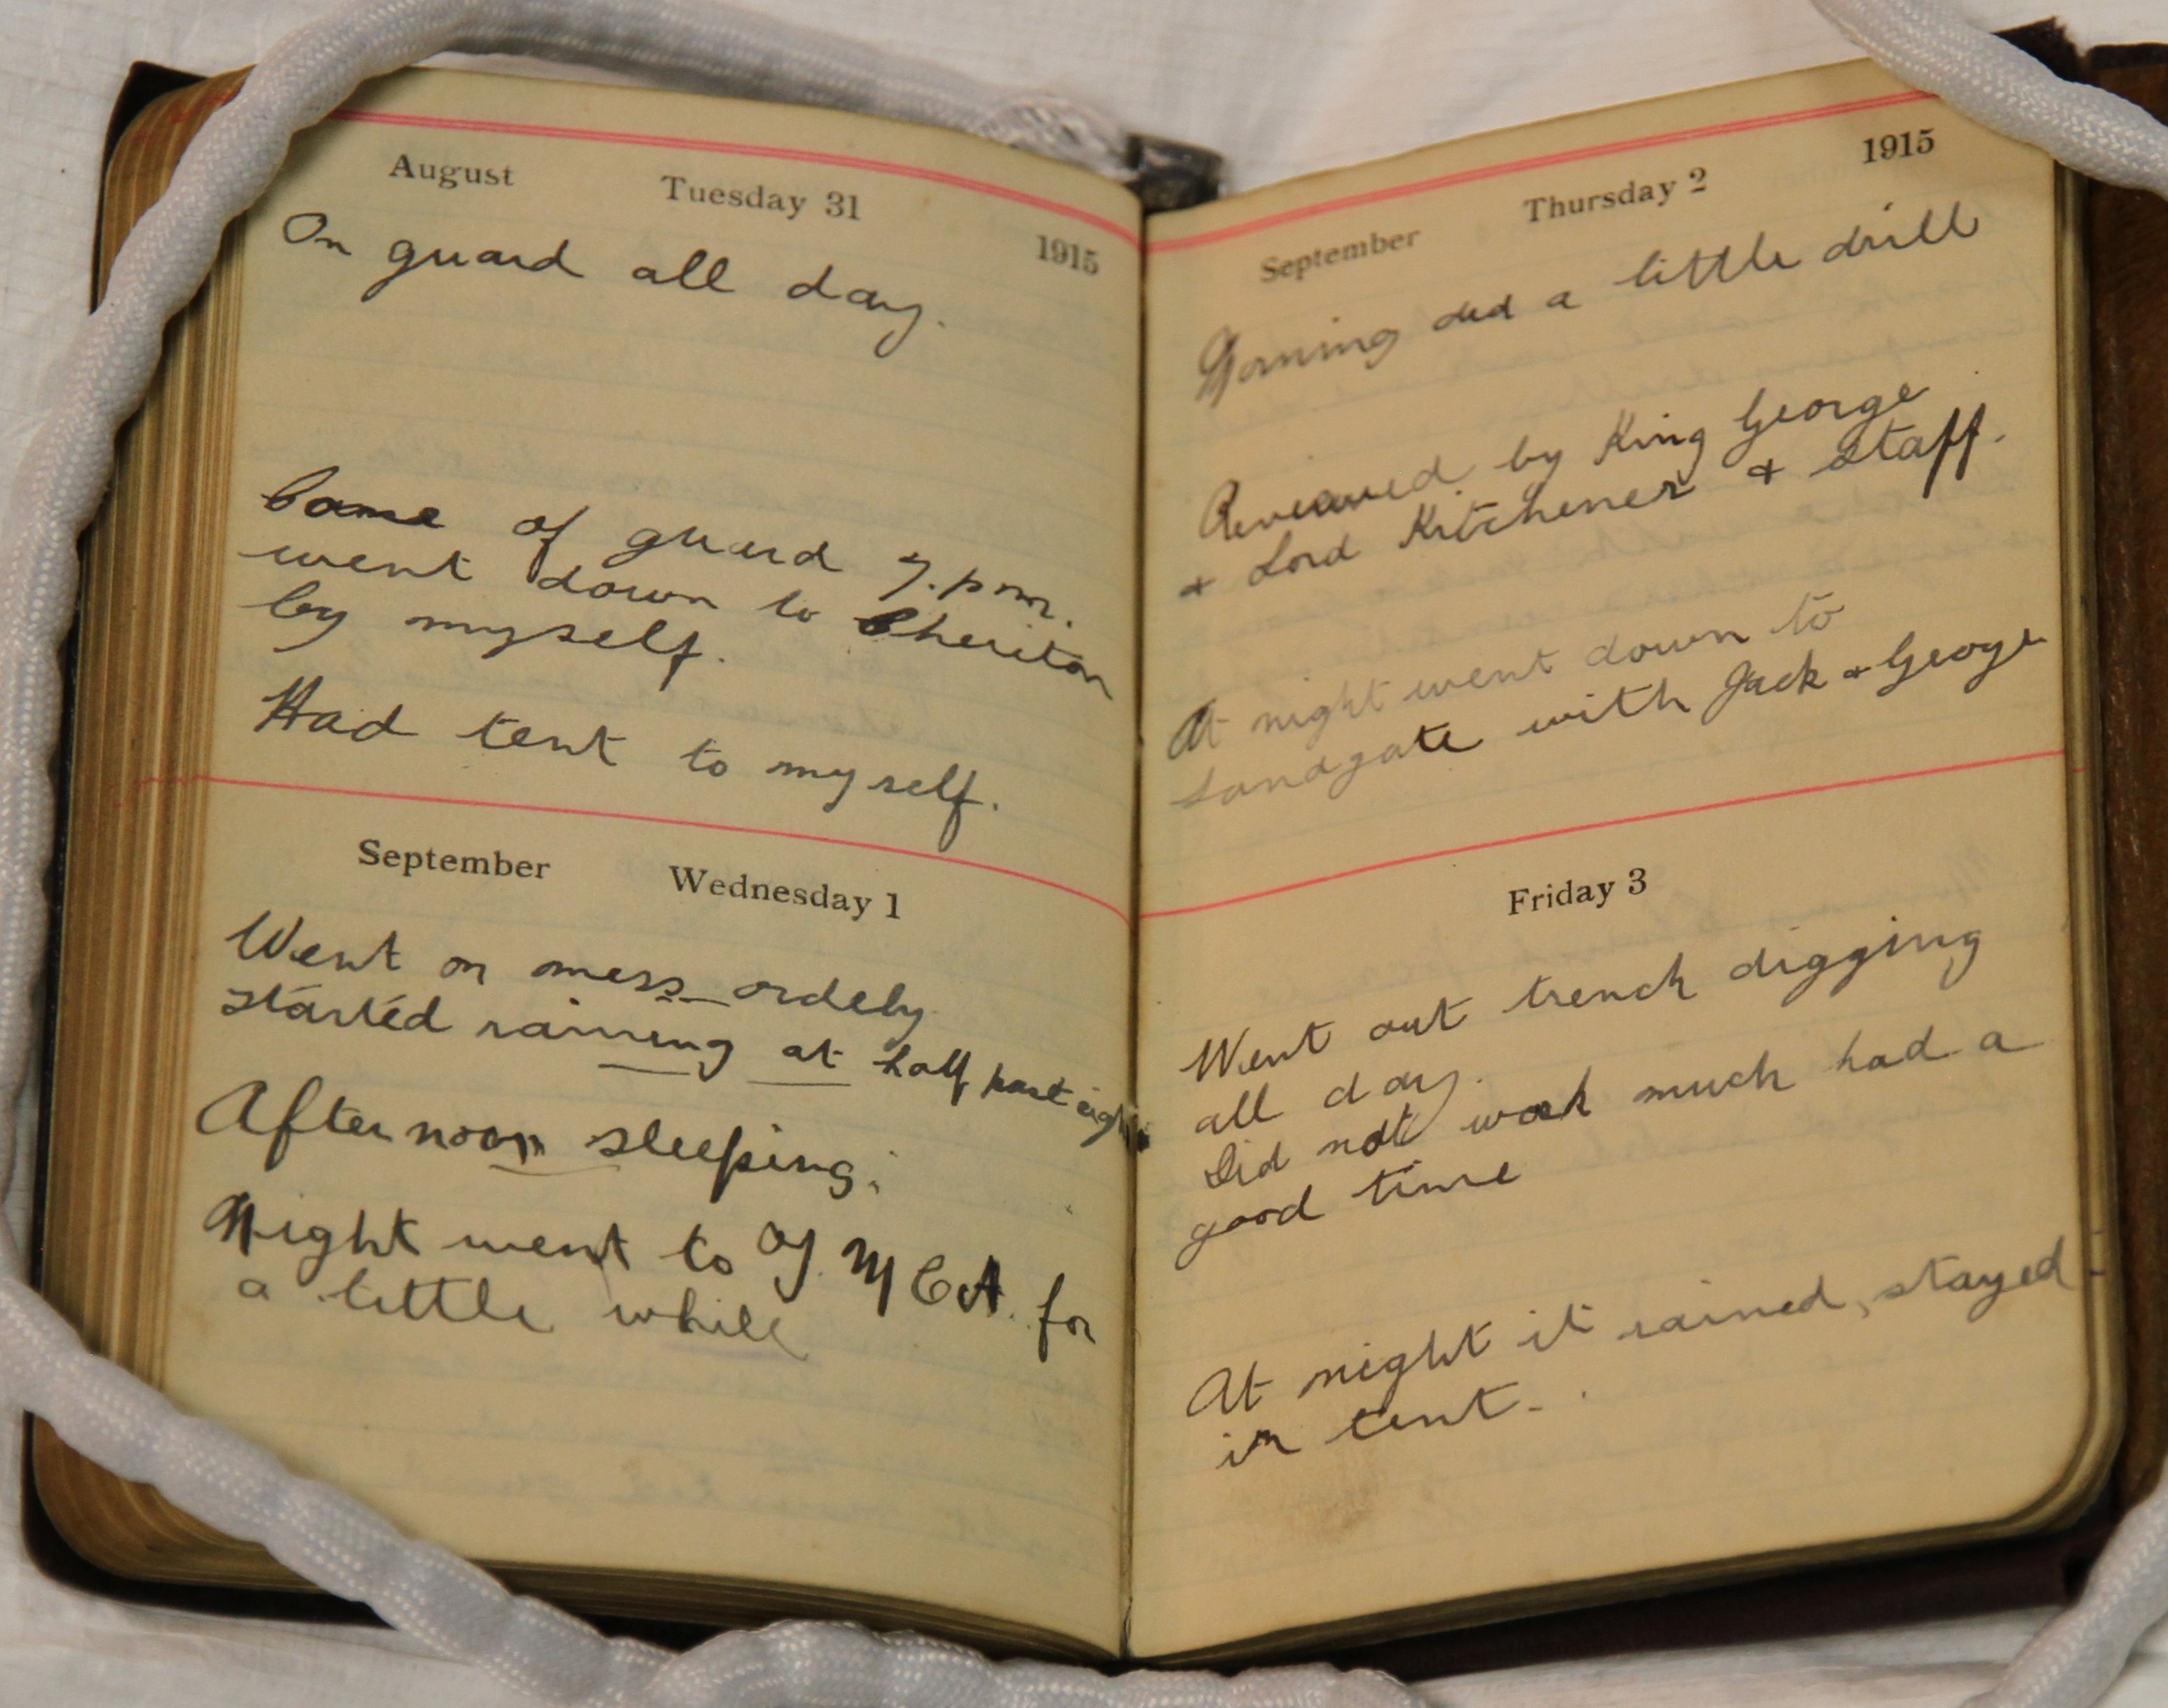 August Tuesday 31 1915
On guard all day.
Came of guard 7.pm.
went down to Cheriton
by myself.
Had tent to myself.
September Wednesday 1
Went on mess ordely
started raining at half past eight
Afternoon sleeping.
Night went to Y.M.C.A. for
a little while
September Thursday 2 1915
Morning did a little drill
Reviewed by King George
+ Lord Kitchener + staff.
At night went down to
Sandgate with Jack + George
Friday 3
Went out trench digging
all day.
Did not work much had a
good time
At night it rained, stayed
in tent.